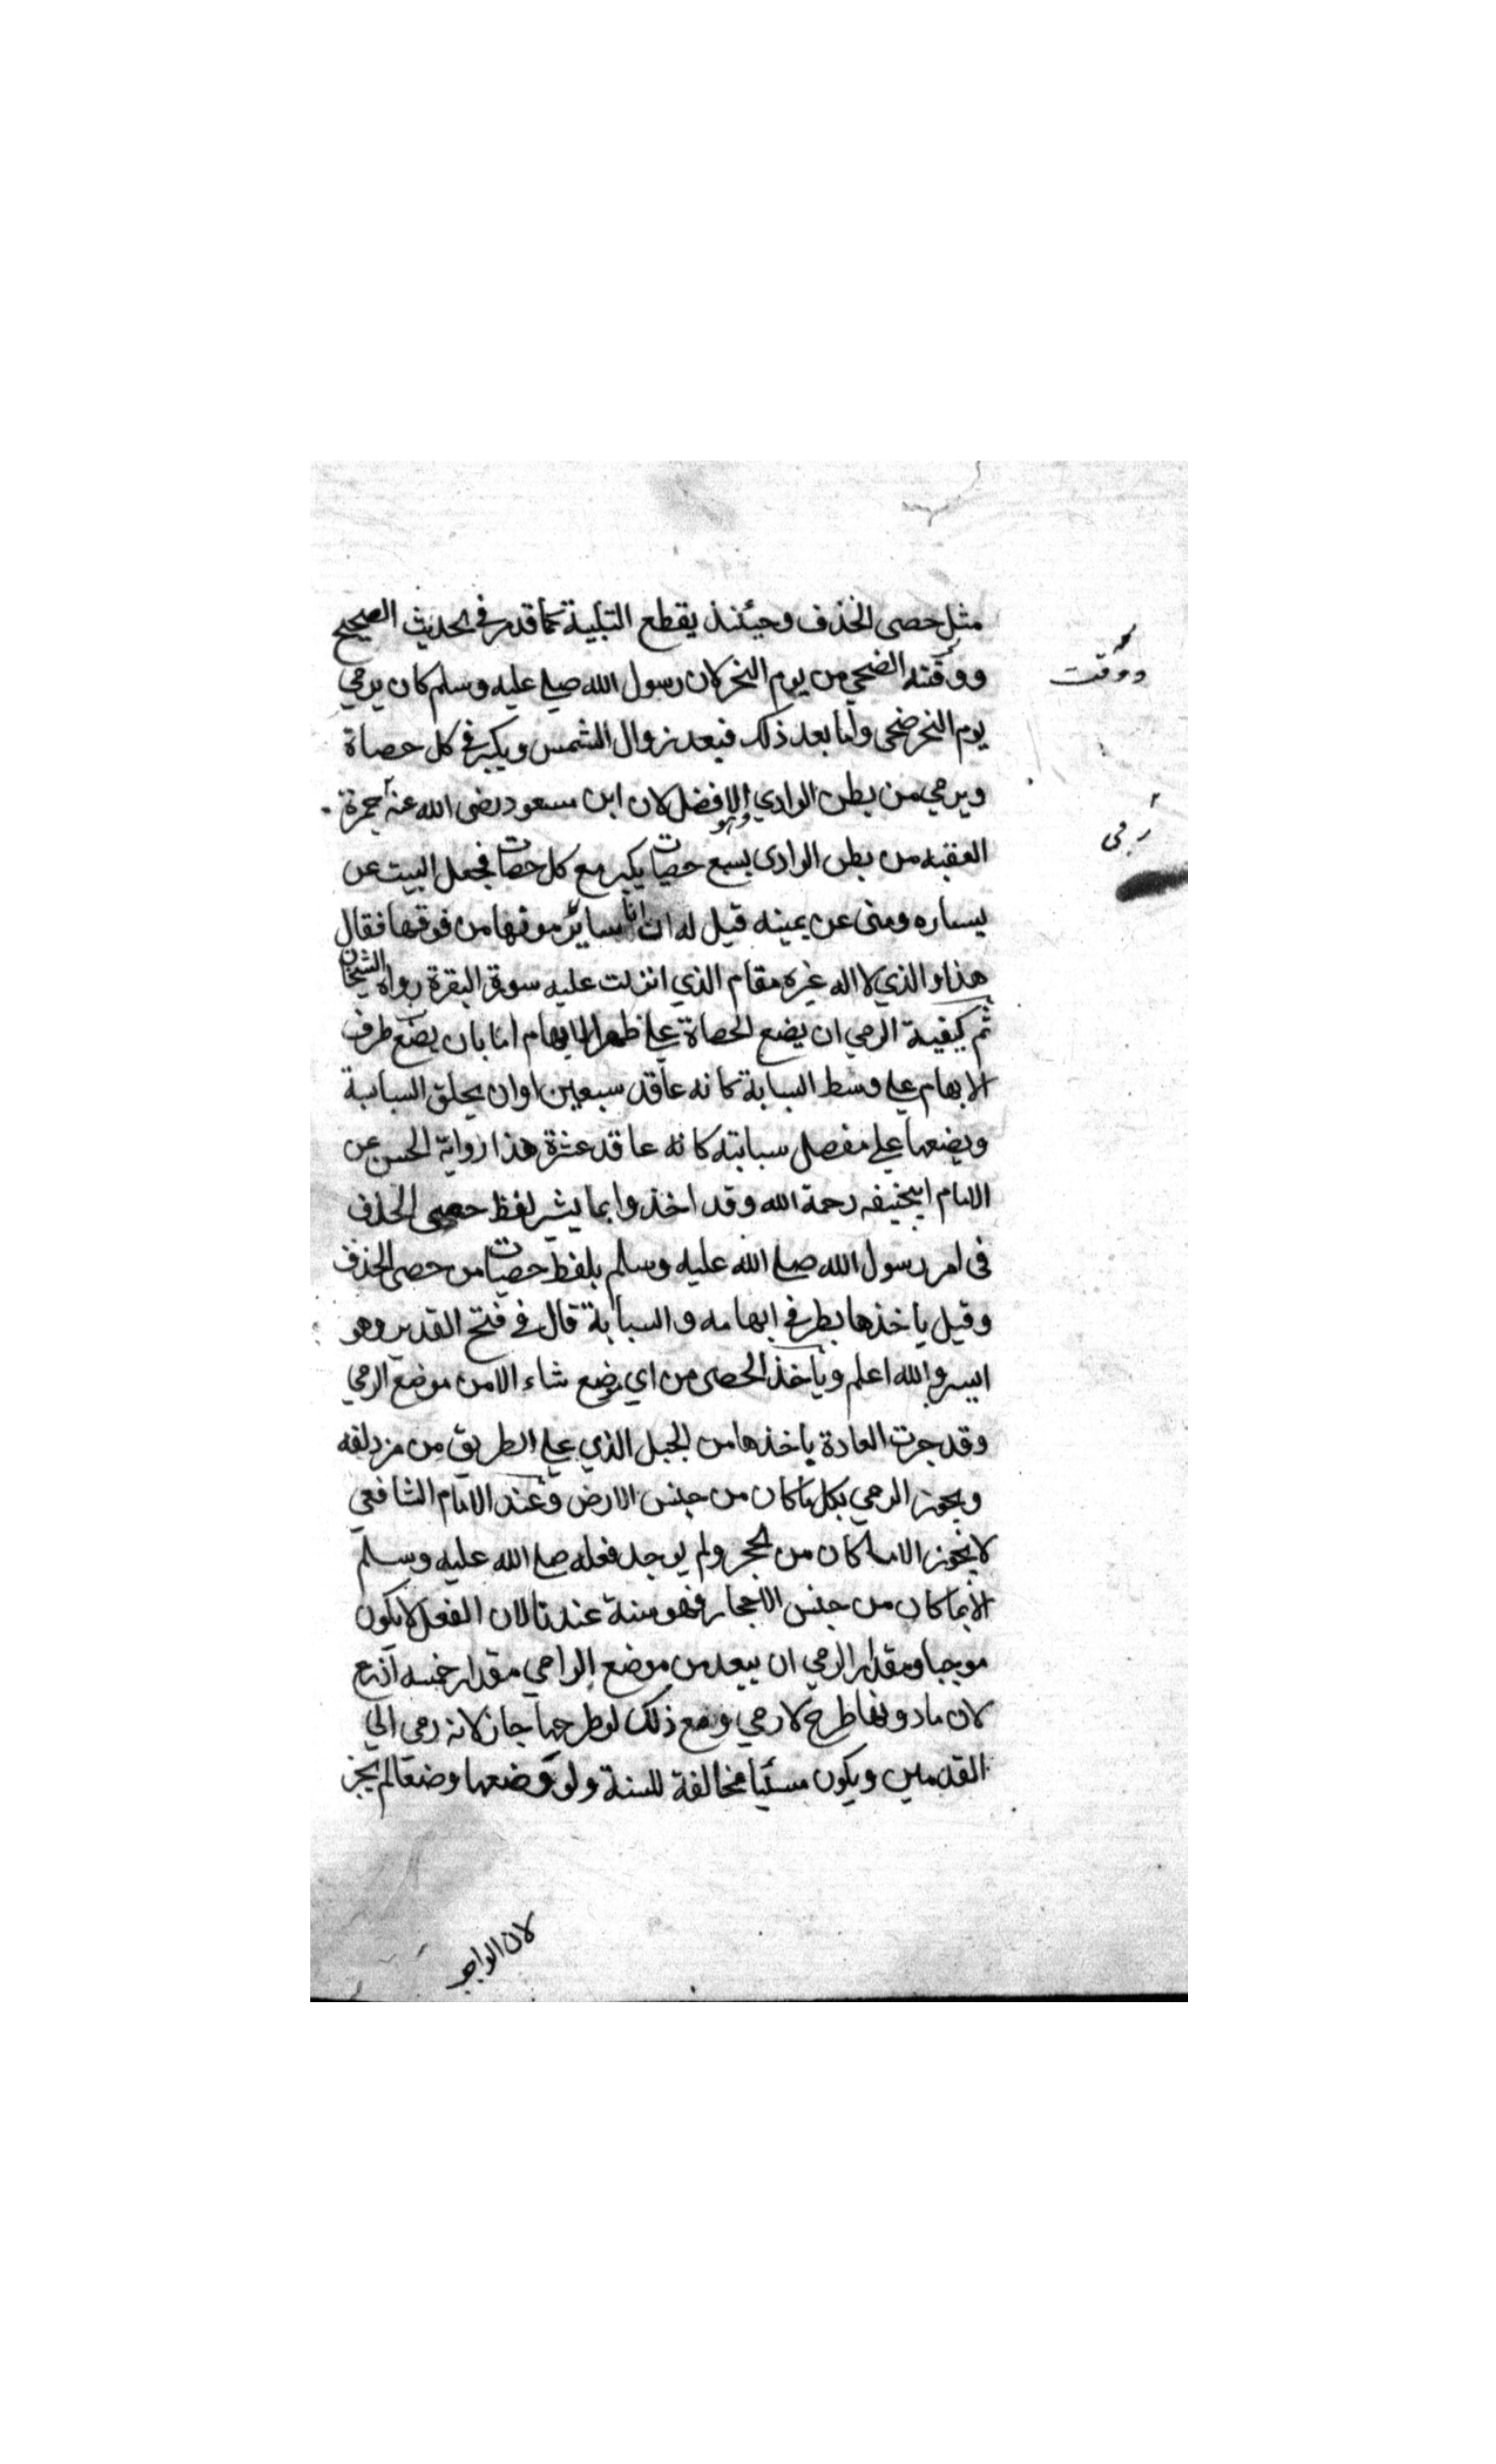 مثل حصى الخذف وحينئذ يقطع التلبية كما قدم في الحديث الصحيح
ووقته الضحى من يوم النحر لان رسول الله صلى عليه وسلم كان يرمي
ووقت
يوم النحر ضحى واما بعد ذلك فبعد زوال الشمس ويكبر في كل حصاة
ويرمي من بطن الوادي وهو الافضل لان ابن مسعود رضى الله عنه جمرة
رمى
العقبه من بطن الوادى بسبع حصيات يكبر مع كل حصات فجعل البيت عن
يساره ومنى عن يمينه قيل له ان اناسا يرمونها من فوقها فقال
هذا والذي لا اله غيره مقام الذي انزلت عليه سورة البقرة رواه الشيخان
ثم كيفية الرمي ان يضع الحصاة على ظهر الابهام اما بان يضع طرف
الابهام على وسط السبابة كانه عاقد سبعين اوان يحلق السبابة
ويضعها على مفصل سبابته كانه عاقد عشرة هذا رواية الحسن عن
الامام ابيحنيفه رحمة الله وقد اخذوا بما يشير لفظ حصى الخذف
في امر رسول الله صلى الله عليه وسلم بلفظ حصيات من حصى الخذف
وقيل ياخذها بطرفي ابهامه والسبابة قال في فتح القدير وهو
ايسر والله اعلم ويأخذ الحصى من اي موضع شاء الا من موضع الرمي
وقد جرت العادة ياخذها من الجبل الذي على الطريق من مزدلفه
ويجوز الرمي بكل ما كان من جنس الارض وعند الامام الشافعي
لا يجوز الا ما كان من الحجر ولم يوجد فعله صلى الله عليه وسلم
الا بما كان من جنس الاحجار فهو سنة عندنا لان الفعل لا يكون
موجبا ومقدار الرمي ان يبعد من موضع الرامي مقدار خمسه اذرع
لان ما دونها طرح لا رمي ومع ذلك لو طرحها جاز لانه رمى الى
القدمين ويكون مسئيا مخالفة للسنة ولو وضعها وضعا لم يجز
لان الواجب